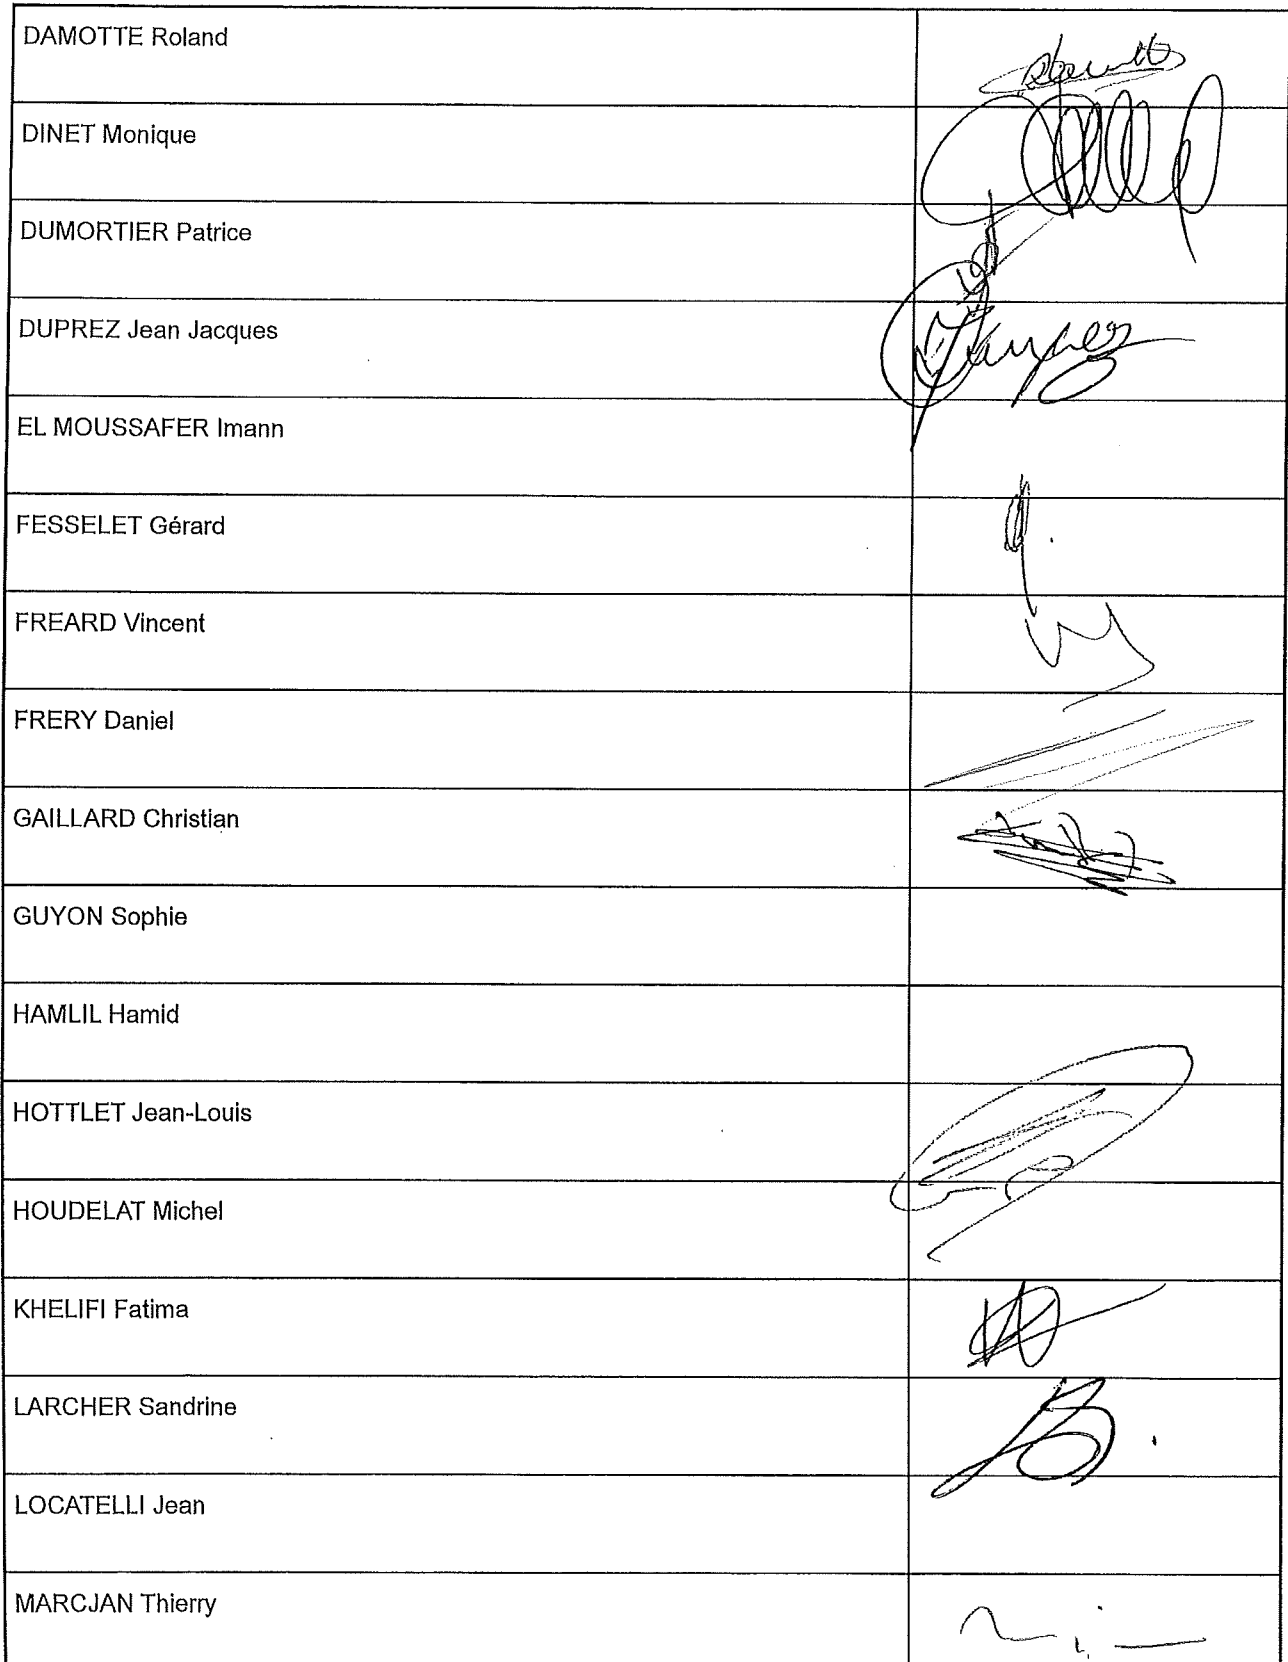 DAMOTTE Roland
DINET Monique
DUMORTIER Patrice
DUPREZ Jean Jacques
EL MOUSSAFER Imann
FESSELET Gérard
FREARD Vincent
FRERY Daniel
GAILLARD Christian
GUYON Sophie
HAMLIL Hamid
HOTTLET Jean-Louis
HOUDELAT Michel
KHELIFI Fatima
LARCHER Sandrine
LOCATELLI Jean
MARCJAN Thierry